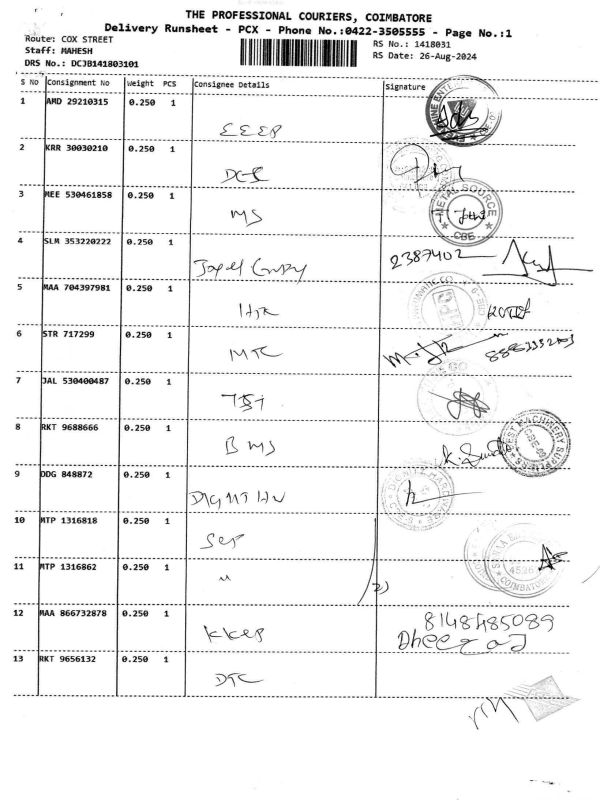 THE PROFESSIONAL COURIERS, COIMBATORE
Delivery Runsheet - PCX - Phone No.:0422-3505555 - Page No.:1
Route: COX STREET
Staff: MAHESH
DRS No.: DCJB141803101
RS No.: 1418031
RS Date: 26-Aug-2024
S No Consignment No Weight PCS Consignee Details Signature
1 AMD 29210315 0.250 1
2 KRR 30030210 0.250 1
3 MEE 530461858 0.250 1 MS
METAL SOURCE CBE
4 SLM 353220222 0.250 1 2387402
5 MAA 704397981 0.250 1
6 STR 717299 0.250 1 MTC
7 JAL 530400487 0.250 1
8 RKT 9688666 0.250 1 BMS
BEST MACHINERY
9 DDG 848872 0.250 1
10 MTP 1316818 0.250 1 SEP
11 MTP 1316862 0.250 1 "
4526
COIMBATORE
12 MAA 866732878 0.250 1 KKEP 8148485089
Dheeraj
13 RKT 9656132 0.250 1 DTC